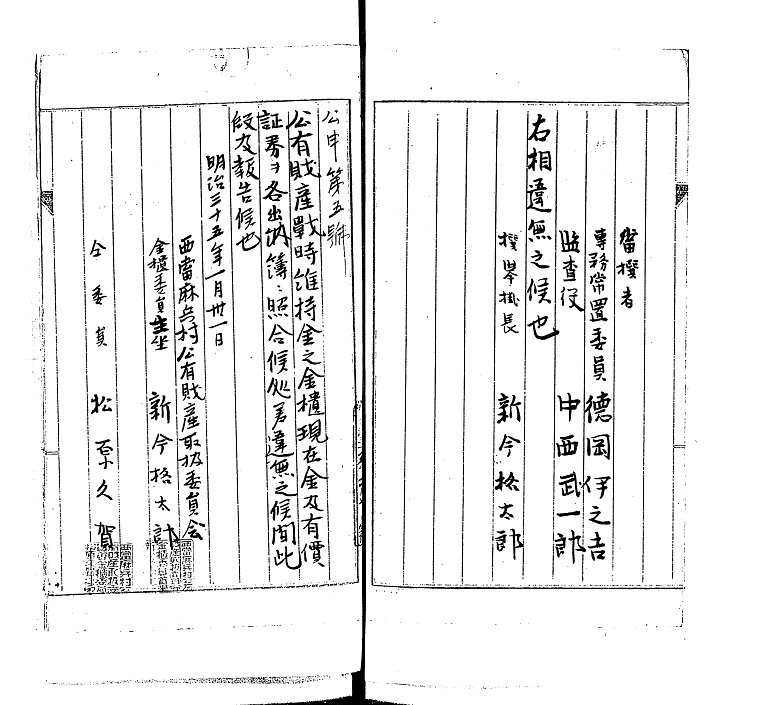 當撰者
専務常置委員 德岡伊之吉
監査役 中西武一郎
右相違無之候也
撰挙掛長 新今格太郎
公申第五號
公有財産戰時維持金之金櫃現在金及有價
証券ヲ各出納簿ニ照合候処差違無之候間此
段及報告候也
明治三十五年一月卅一日
西當麻兵村公有財産取扱委員会
金櫃委員主坐 新今格太郎
仝委員 松原久賀